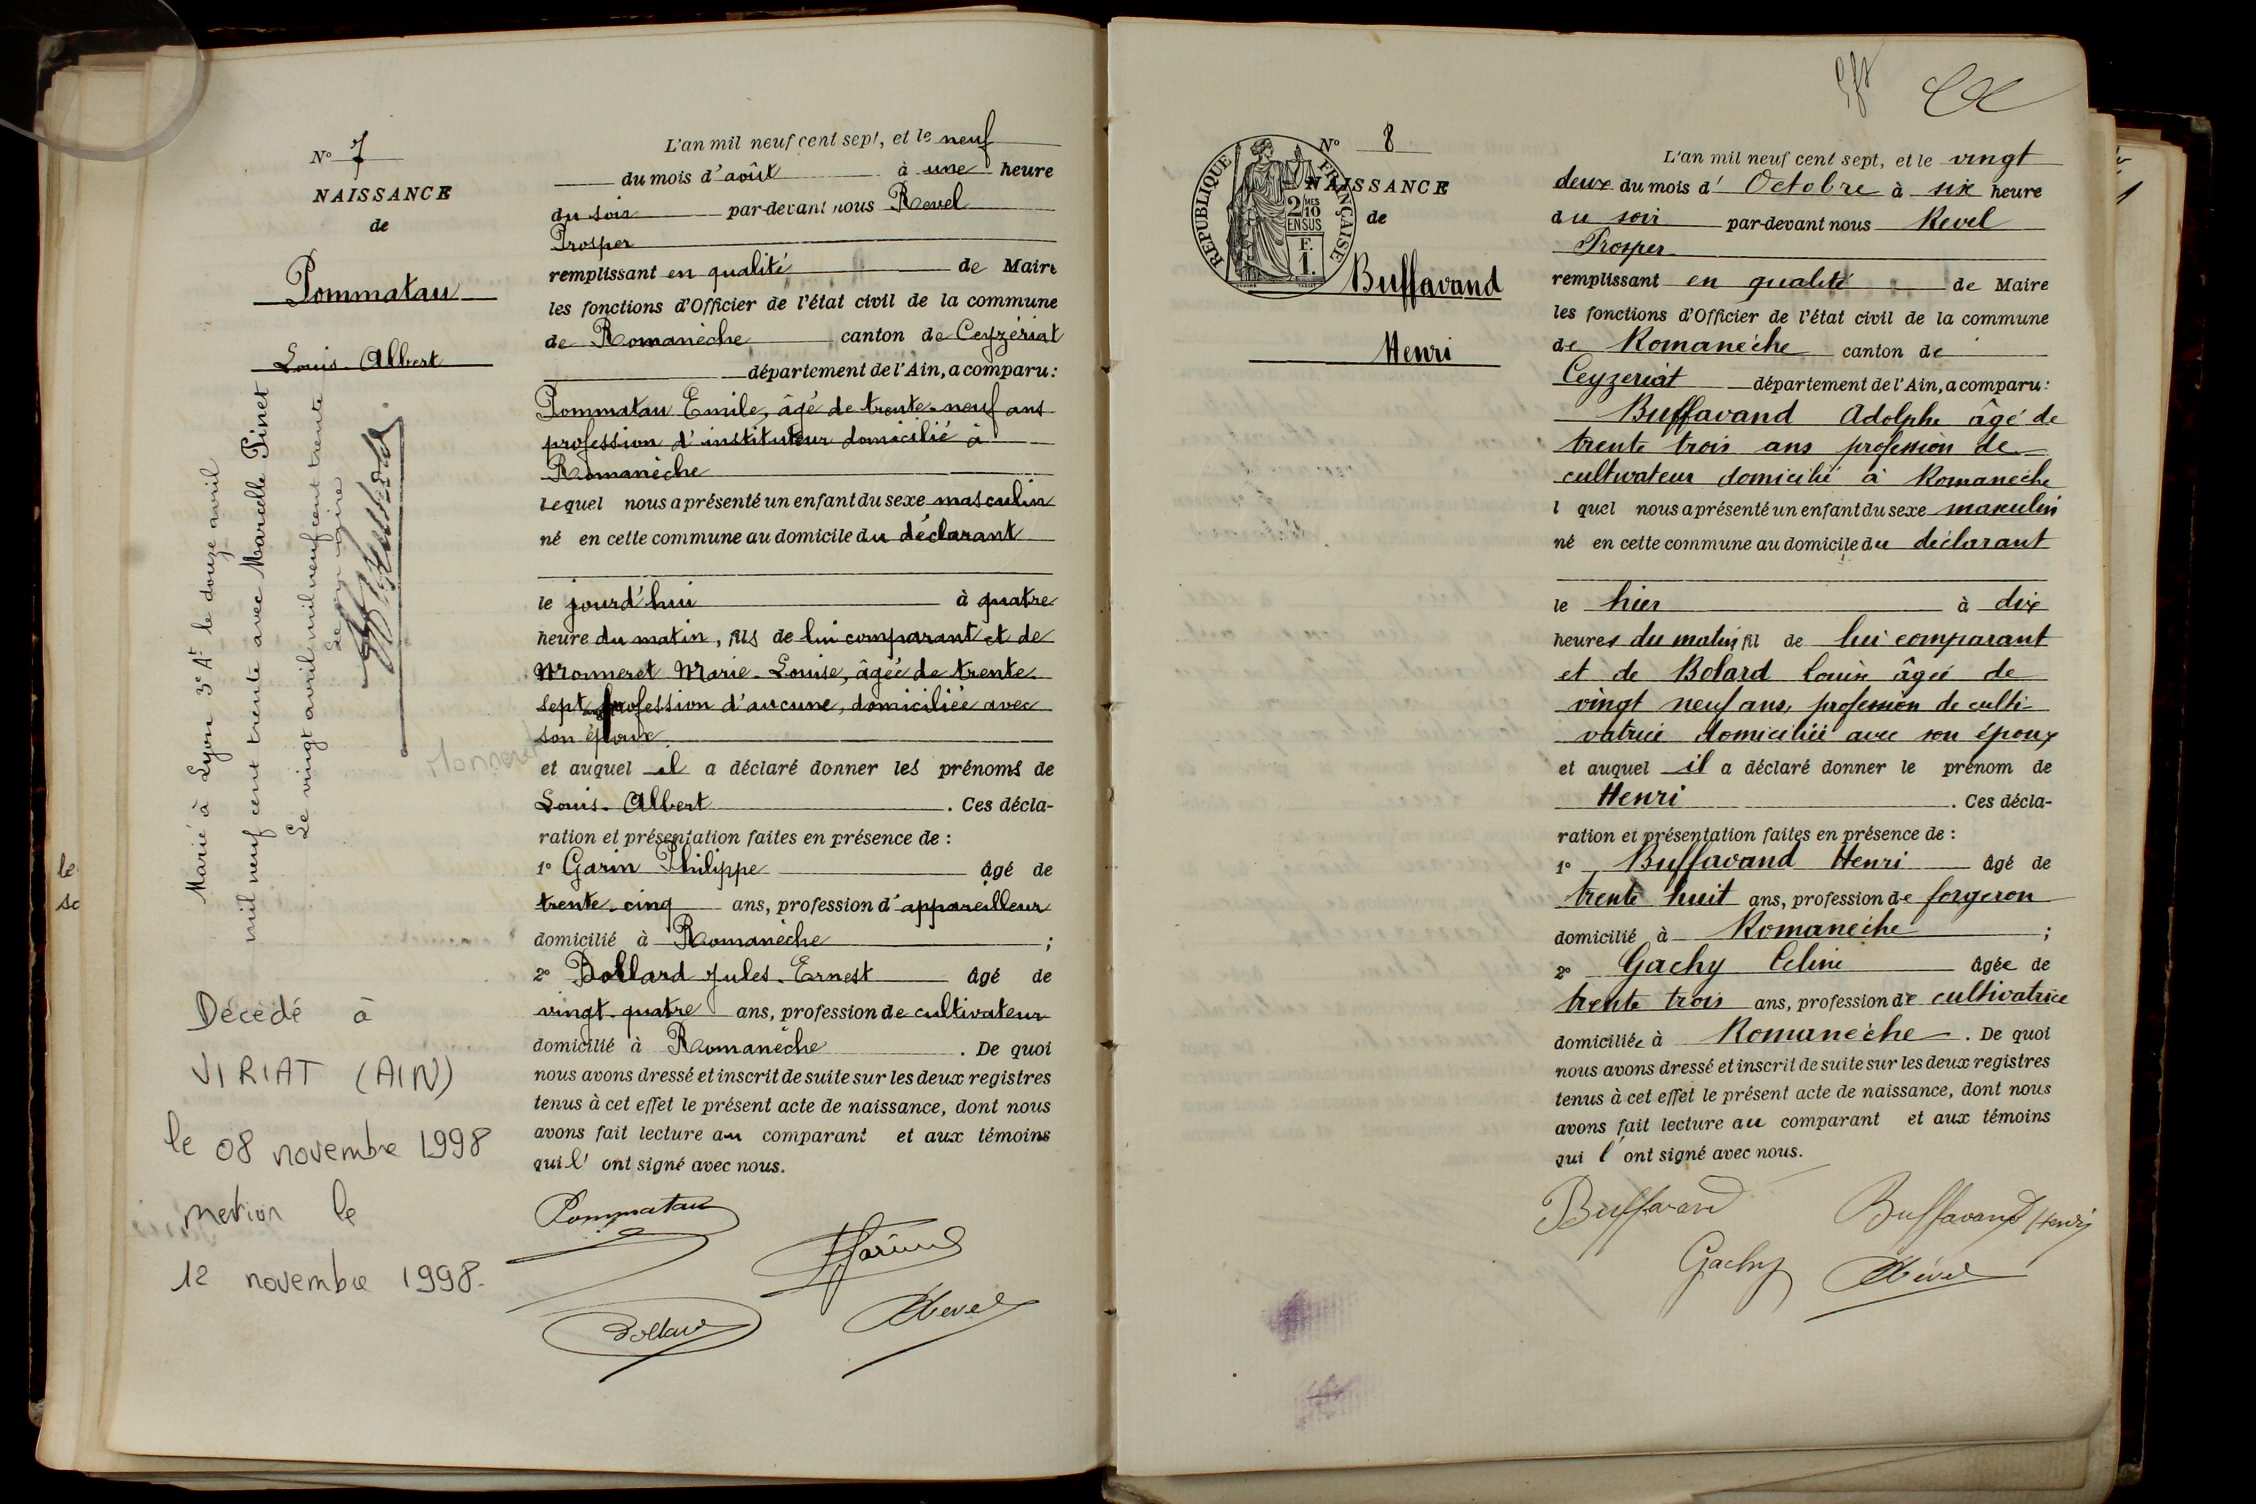 le
sc
N° 7
NAISSANCE
de
Pommatau
Louis-Albert
Marié à Lyon 3e At le douze avril
mil neuf cent trente avec Marcelle Pinet
Le vingt avril mil neuf cent trente
Le
Décédé à
VIRIAT (AIN)
le 08 novembre 1998
mention le
12 novembre 1998.
L'an mil neuf cent sept, et le neuf
du mois d'août à une heure
du soir par-devant nous Revel
Prosper
remplissant en qualité de Maire
les fonctions d'Officier de l'état civil de la commune
de Romanèche canton de Ceyzériat
département de l'Ain, a comparu:
Pommatau Emile, âgé de trente-neuf ans
profession d'instituteur domicilié à
Romanèche
lequel nous a présenté un enfant du sexe masculin
né en cette commune au domicile du déclarant
le jourd'hui à quatre
heure du matin, fils de lui comparant et de
Monneret Marie-Louise, âgée de trente
sept ans profession d'aucune, domiciliée avec
son époux
Monneret
et auquel il a déclaré donner les prénoms de
Louis-Albert. Ces décla-
ration et présentation faites en présence de :
1° Garin Philippe âgé de
trente-cinq ans, profession d'appareilleur
domicilié à Romanèche ;
2° Dollard Jules-Ernest âgé de
vingt-quatre ans, profession de cultivateur
domicilié à Romanèche . De quoi
nous avons dressé et inscrit de suite sur les deux registres
tenus à cet effet le présent acte de naissance, dont nous
avons fait lecture au comparant et aux témoins
qui l' ont signé avec nous.
Pommatau
Garin
Dollard
Revel
N° 8
RÉPUBLIQUE FRANÇAISE
2/10 MES
EN SUS
F.
1.
NAISSANCE
de
Buffavand
Henri
L'an mil neuf cent sept, et le vingt
deux du mois d' Octobre à six heure
du soir par-devant nous Revel
Prosper
remplissant en qualité de Maire
les fonctions d'Officier de l'état civil de la commune
de Romanèche canton de
Ceyzeriat département de l'Ain, a comparu:
Buffavand Adolphe âgé de
trente trois ans profession de
cultivateur domicilié à Romanèche
l quel nous a présenté un enfant du sexe masculin
né en cette commune au domicile du déclarant
le hier à dix
heures du matin fil de lui comparant
et de Bolard Louise âgée de
vingt neuf ans, profession de culti-
vatrice domiciliée avec son époux
et auquel il a déclaré donner le prénom de
Henri . Ces décla-
ration et présentation faites en présence de :
1° Buffavand Henri âgé de
trente huit ans, profession de forgeron
domicilié à Romanèche ;
2° Gachy Celine âgée de
trente trois ans, profession de cultivatrice
domiciliée à Romanèche . De quoi
nous avons dressé et inscrit de suite sur les deux registres
tenus à cet effet le présent acte de naissance, dont nous
avons fait lecture au comparant et aux témoins
qui l' ont signé avec nous.
Buffavand
Buffavand Henri
Gachy
Revel